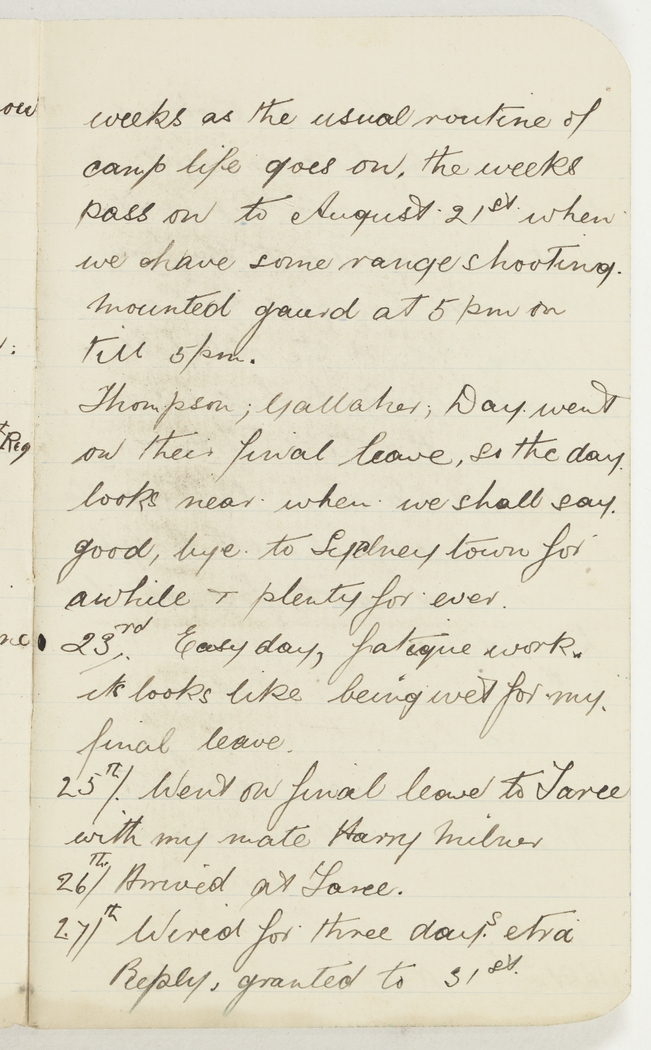 weeks as the usual routine of
camp life goes on, the weeks
pass on to August 21st when
we have some range shooting.
mounted gaurd at 5 pm on
till 5 pm.
Thompson; Gallaher; Day went
on their final leave, so the day
looks near when we shall say.
good, bye. to Sydney town for
awhile + plenty for ever.
23rd. Easy day, fatigue work.
its looks like being wet for my
final leave.
25th/. Went on final leave to Taree
with my mate Harry Milner
26th/ Arrived at Taree.
27/th Wired for three days etra
Reply, granted to 31st.
ow
Reg